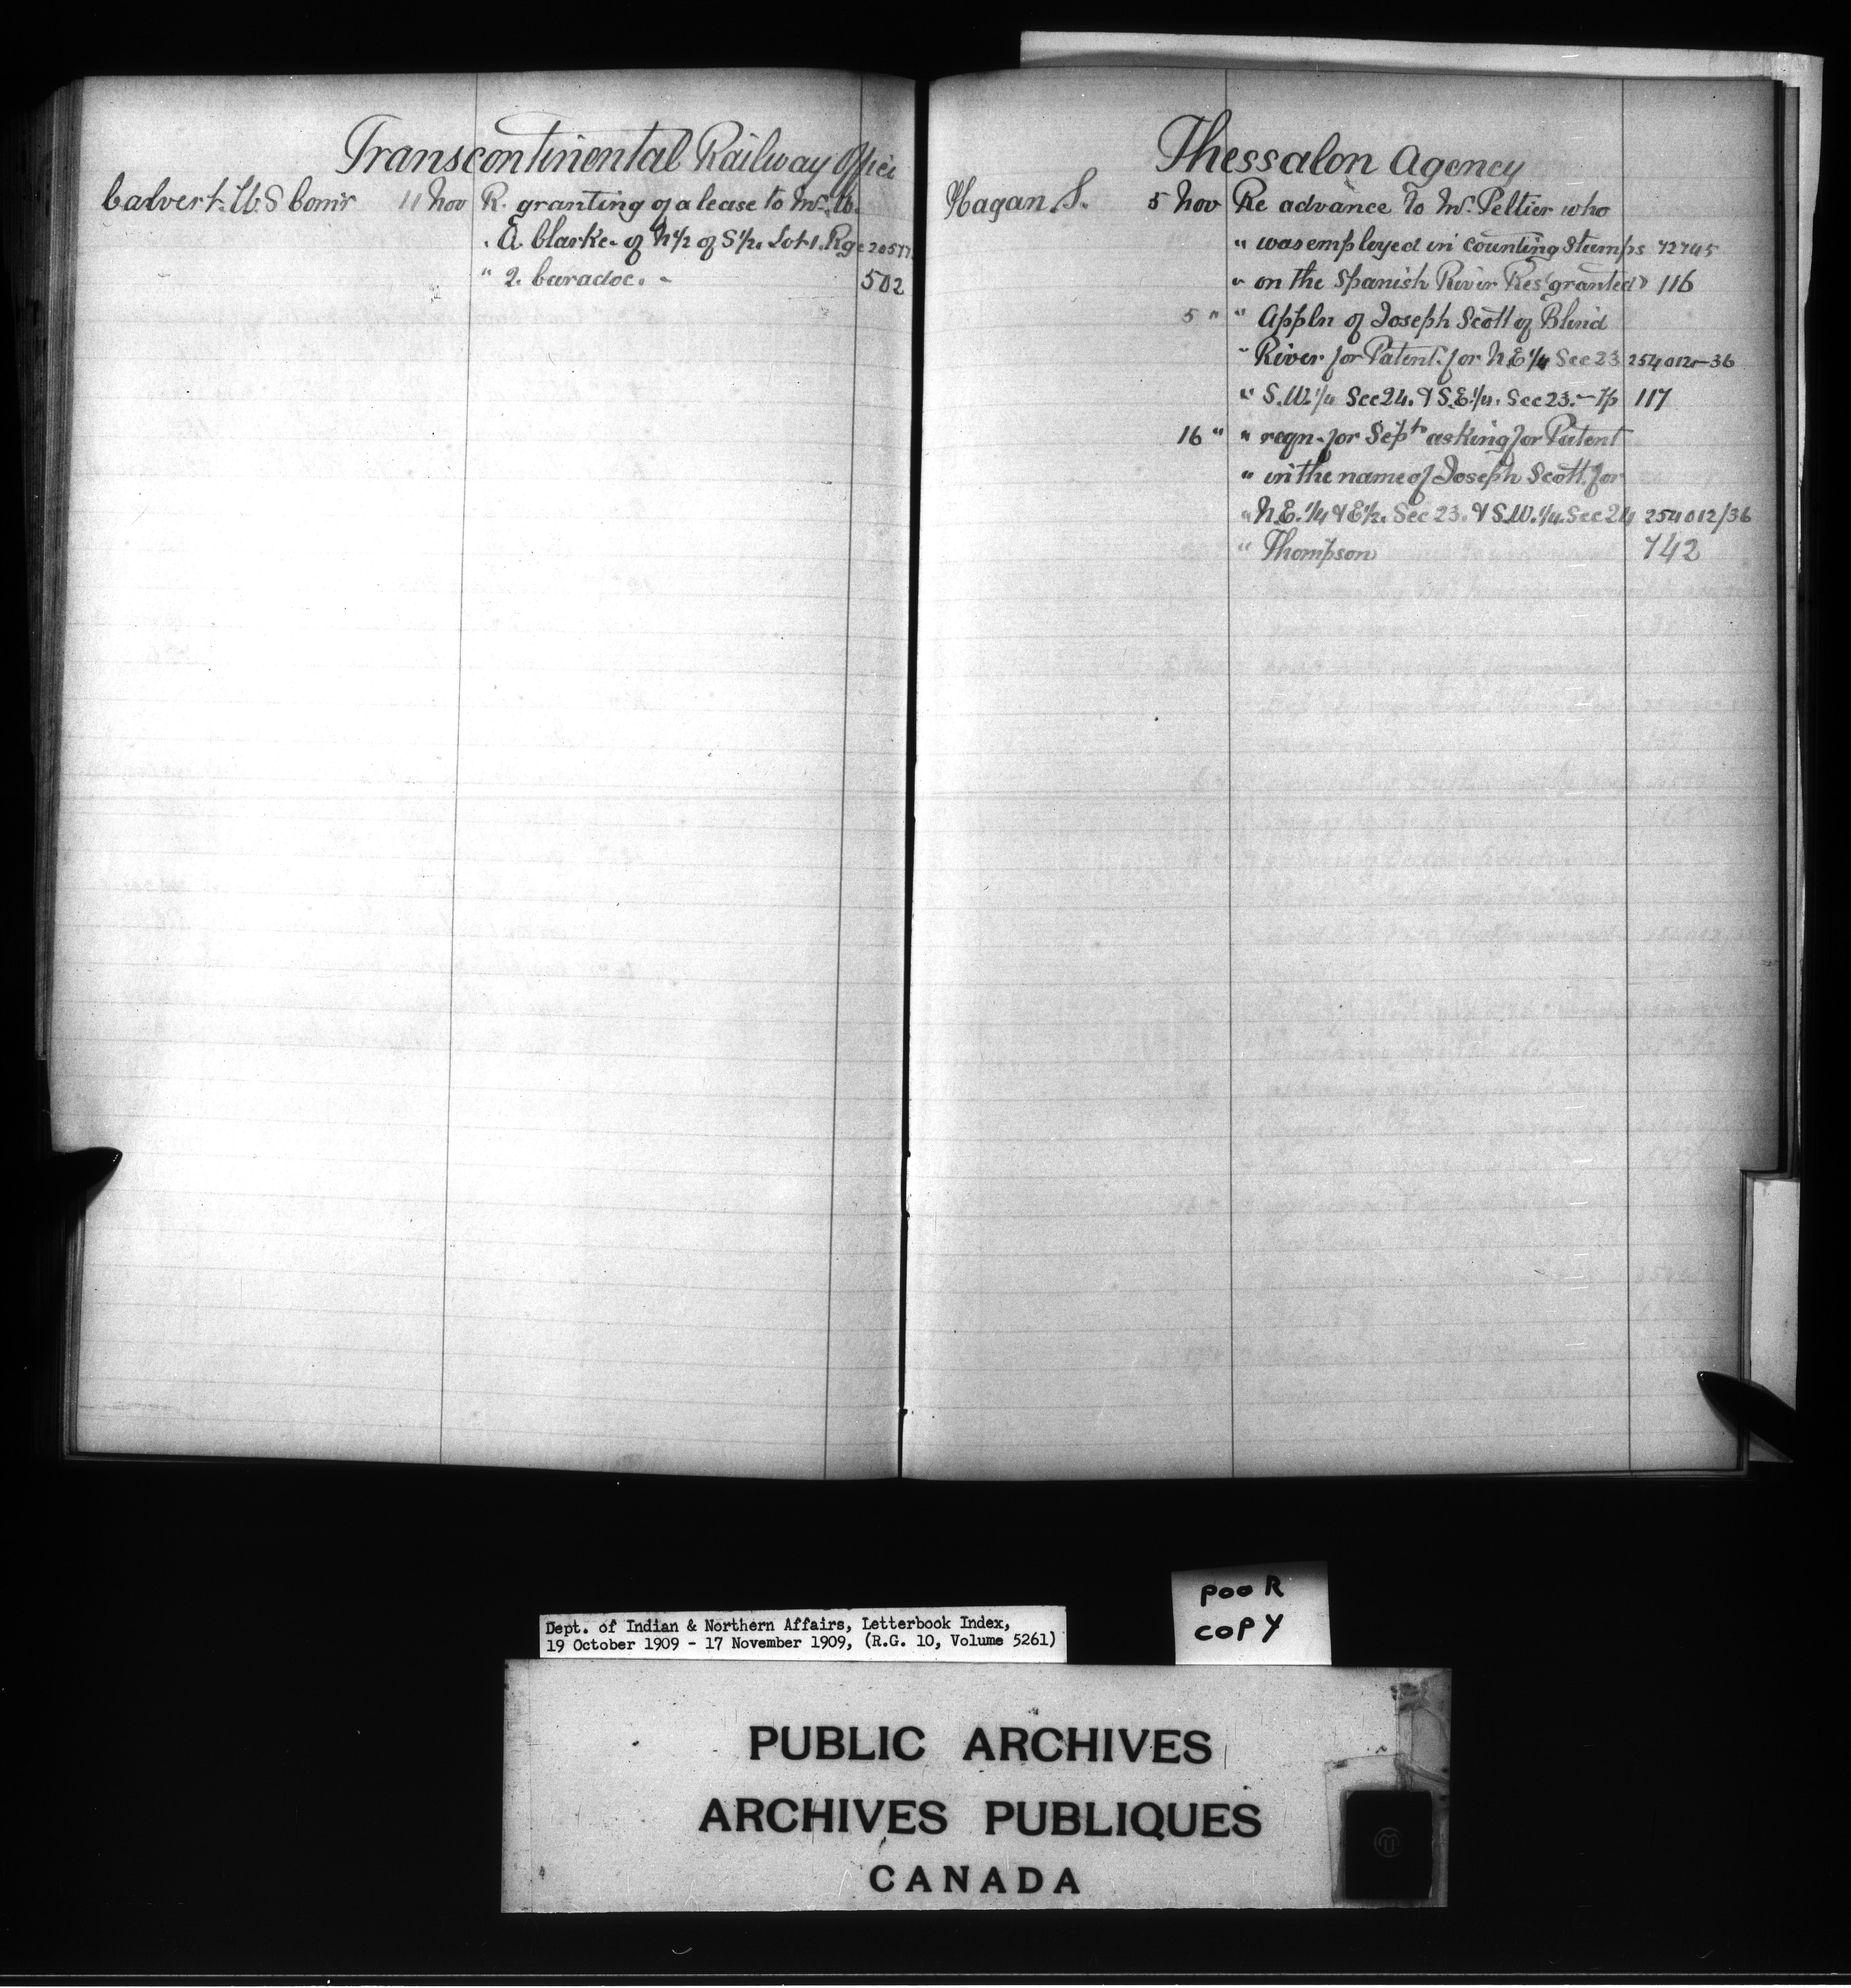 Transcontinental Railway Office
Calvert. W. S Com'r 11 Nov R. granting of a lease to Mr. W.
" A Clarke - of N 1/2 of S 1/2. Lot 1. Rge
" 2. Caradoc. - 502
Thessalon Agency
Hagan S. 5 Nov Re advance to Mr. Peltier who
" was employed in counting Stumps 72745
" on the Spanish River Res granted 116
5 " " Appln of Joseph Scott of Blind
" River for Patent. for N.E 1/4 Sec 23 254012-36
" S.W. 1/4 Sec 24. & S.E. 1/4. Sec 23. - Tp 117
16 " " reqn. for Sept asking for Patent
" in the name of Joseph Scott. for
" N.E. 1/4 & E 1/2. Sec 23. & S.W. 1/4. Sec 24 254012/36
" Thompson 742
Dept. of Indian & Northern Affairs, Letterbook Index,
19 October 1909 - 17 November 1909, (R.G. 10, Volume 5261)
pooR
copy
PUBLIC ARCHIVES
ARCHIVES PUBLIQUES
CANADA